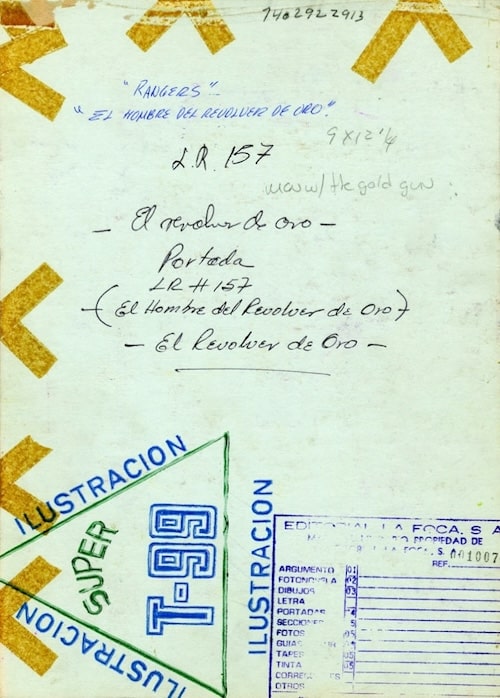 7402922913
"RANGERS"
"EL HOMBRE DEL REVOLVER DE ORO".
9 X 12 1/4
L.R. 157
man w/ the gold gun
— El revolver de oro —
Portada
LR # 157
— (El Hombre del Revolver de Oro)
— El Revolver de Oro —
ILUSTRACION
SUPER
T-99
ILUSTRACION
ILUSTRACION
EDITORIAL LA FOCA, S A
PROPIEDAD DE
LA FOCA, S.
REF. 001007
ARGUMENTO 01
FOTONOVELA 02
DIBUJOS 03
LETRA
PORTADAS 4
SECCIONES 5
FOTOS
GUIAS
TAPES
TINTA
OTROS